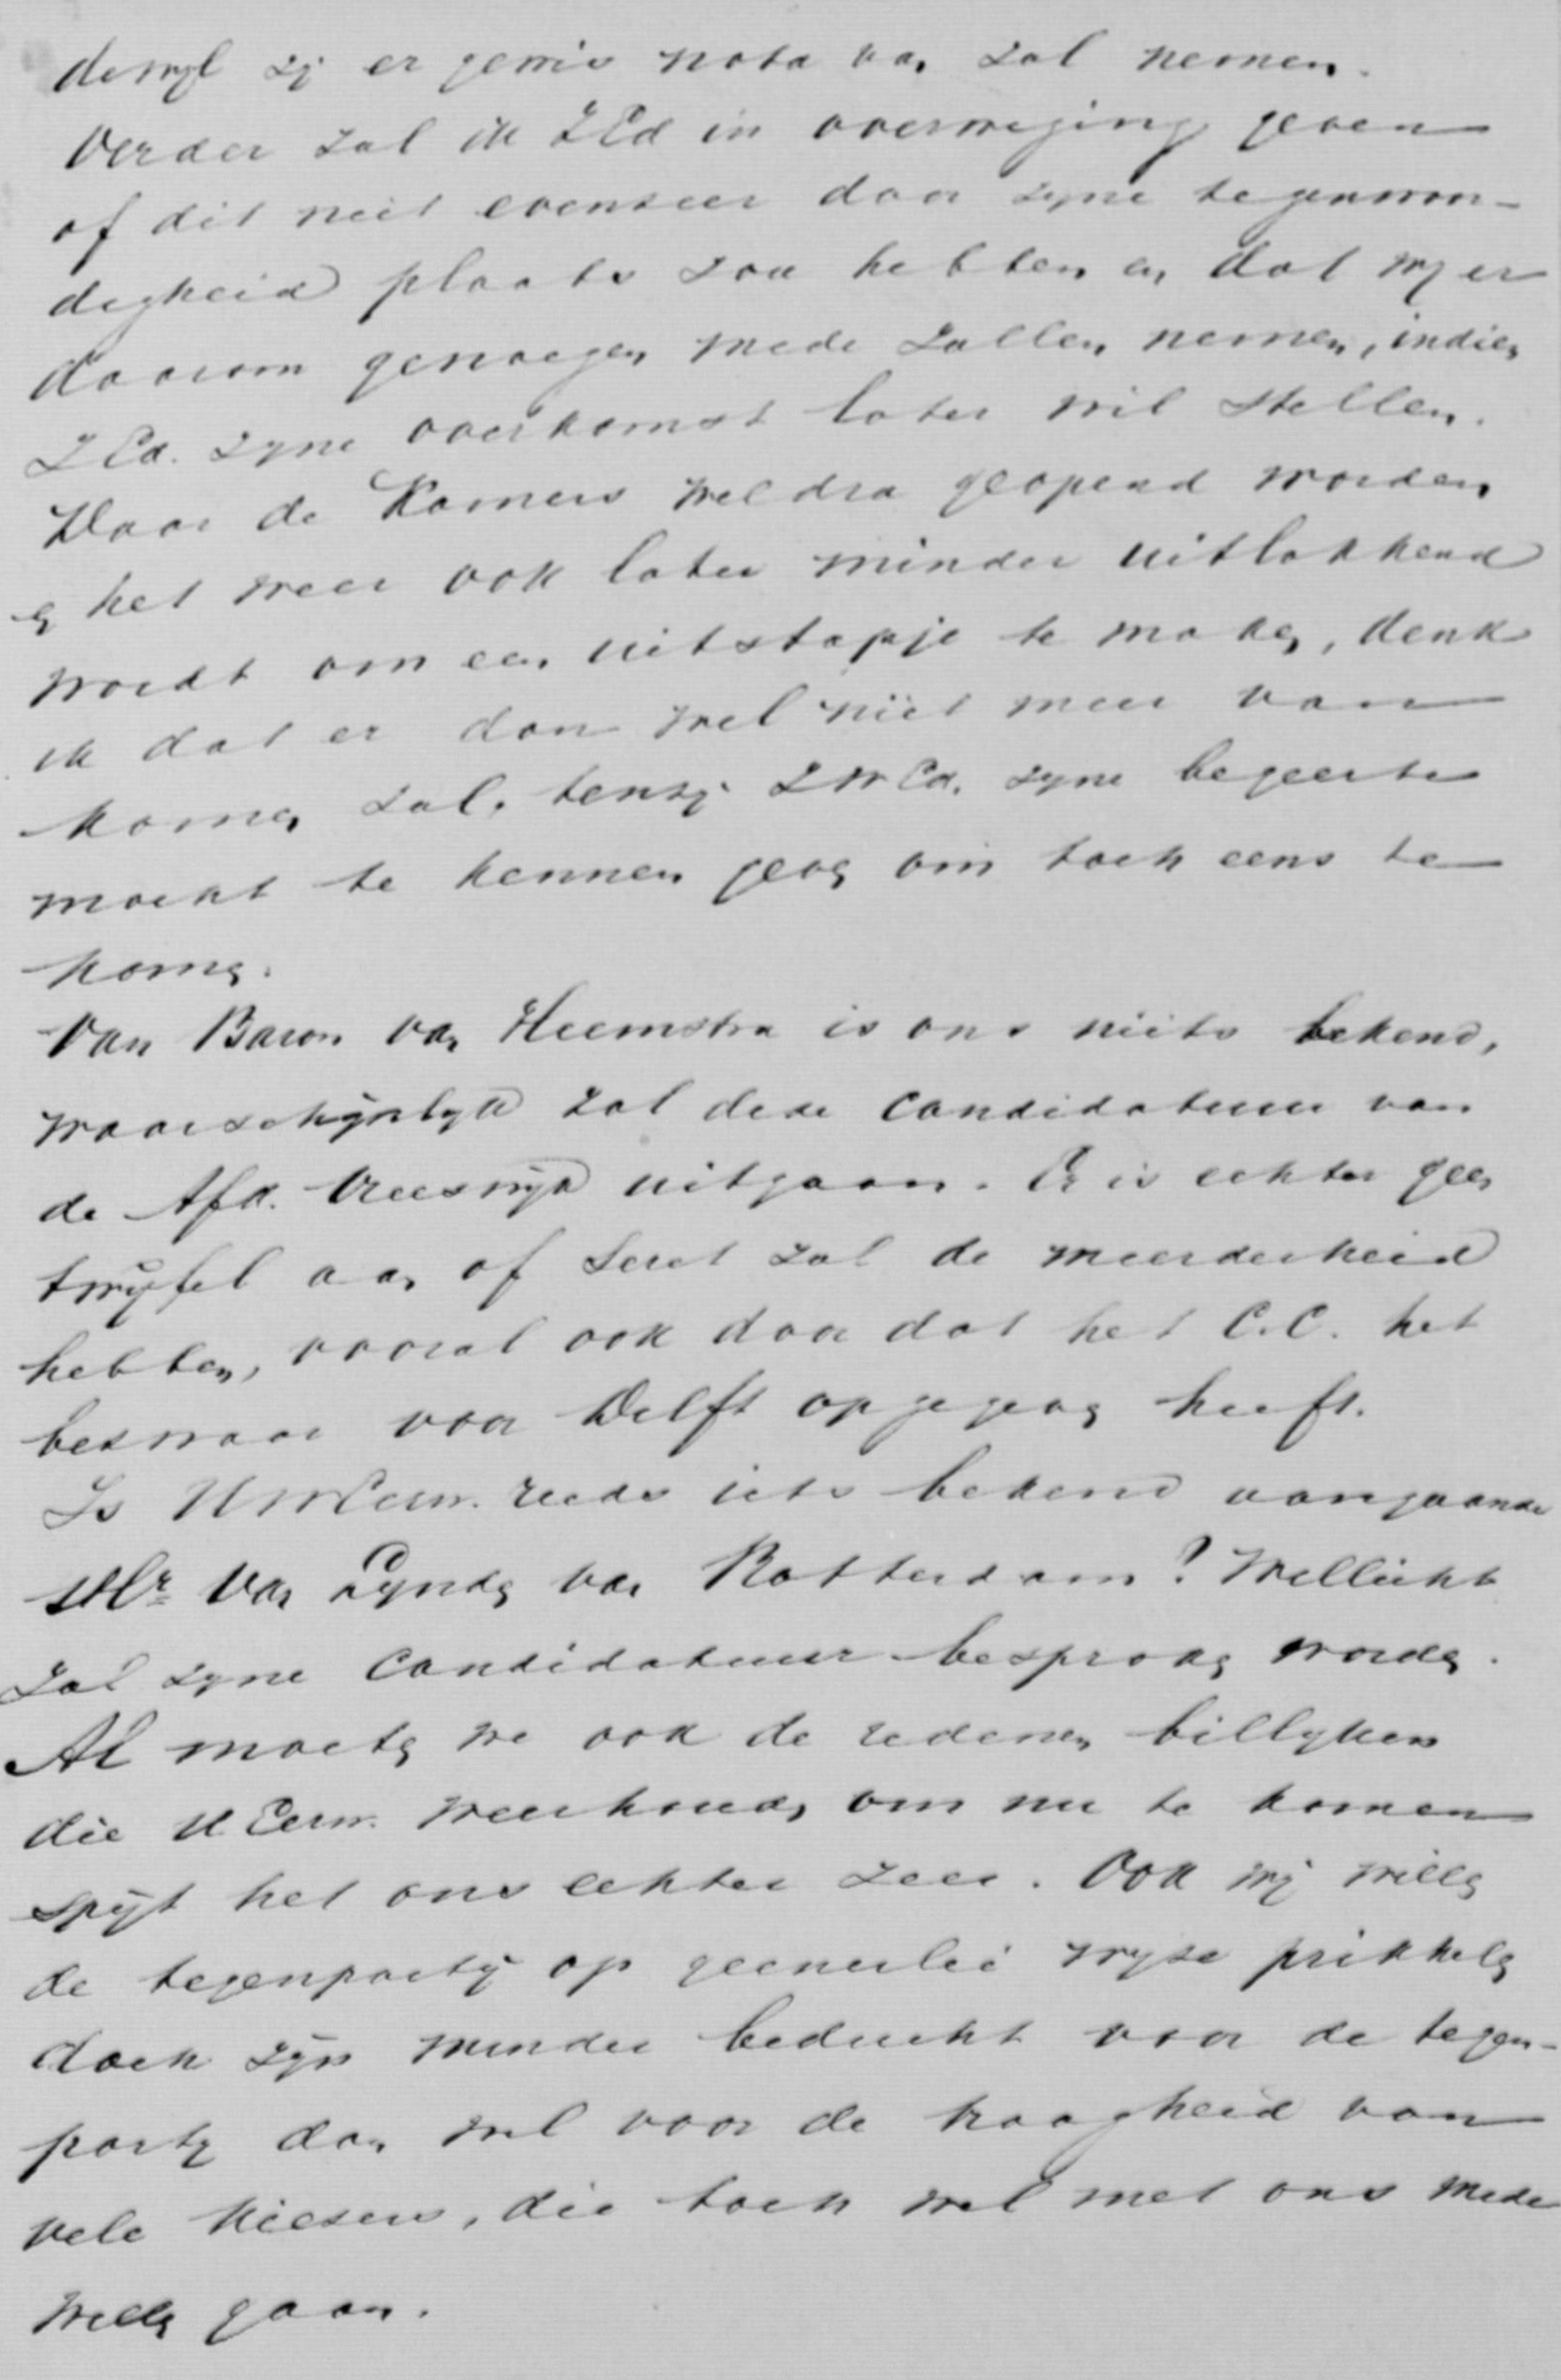 dewyl zij er gewis nota van zal nemen.
Verder zal ik ZEd in overweging geven
of dit niet evenzeer door zyne tegenwoor-
digheid plaats zou hebben en dat wy er
daarom genoegen mede zullen nemen, indien
ZEd. zyne overkomst later wil stellen.
Daar de Kamers weldra geopend worden
en het weer ook later minder uitlokkend
wordt om een uitstapje te maken, denk
ik dat er dan wel niet meer van
komen zal, tenzij ZWEd. zyne begeerte
mocht te kennen geven om toch eens te
komen.
Van Baron van Heemstra is ons niets bekend,
waarschijnlyk zal deze candidatuur van
de Afd. Vreeswijk uitgaan. Er is echter geen
twijfel aan of Seret zal de meerderheid
hebben, vooral ook door dat het C.C. het
bezwaar voor Delft opgegeven heeft.
Is UWEerw. reeds iets bekend aangaande
Mr van Lynden van Rotterdam? Wellicht
zal zyne Candidatuur besproken worden.
Al moeten we ook de redenen billyken
die UEerw. weerhouden om nu te komen
spijt het ons echter zeer. Ook wij willen
de tegenpartij op geenerlei wyze prikkelen
doch zijn minder beducht voor de tegen-
party dan wel voor de traagheid van
vele kiezers, die toch wel met ons mede
willen gaan.